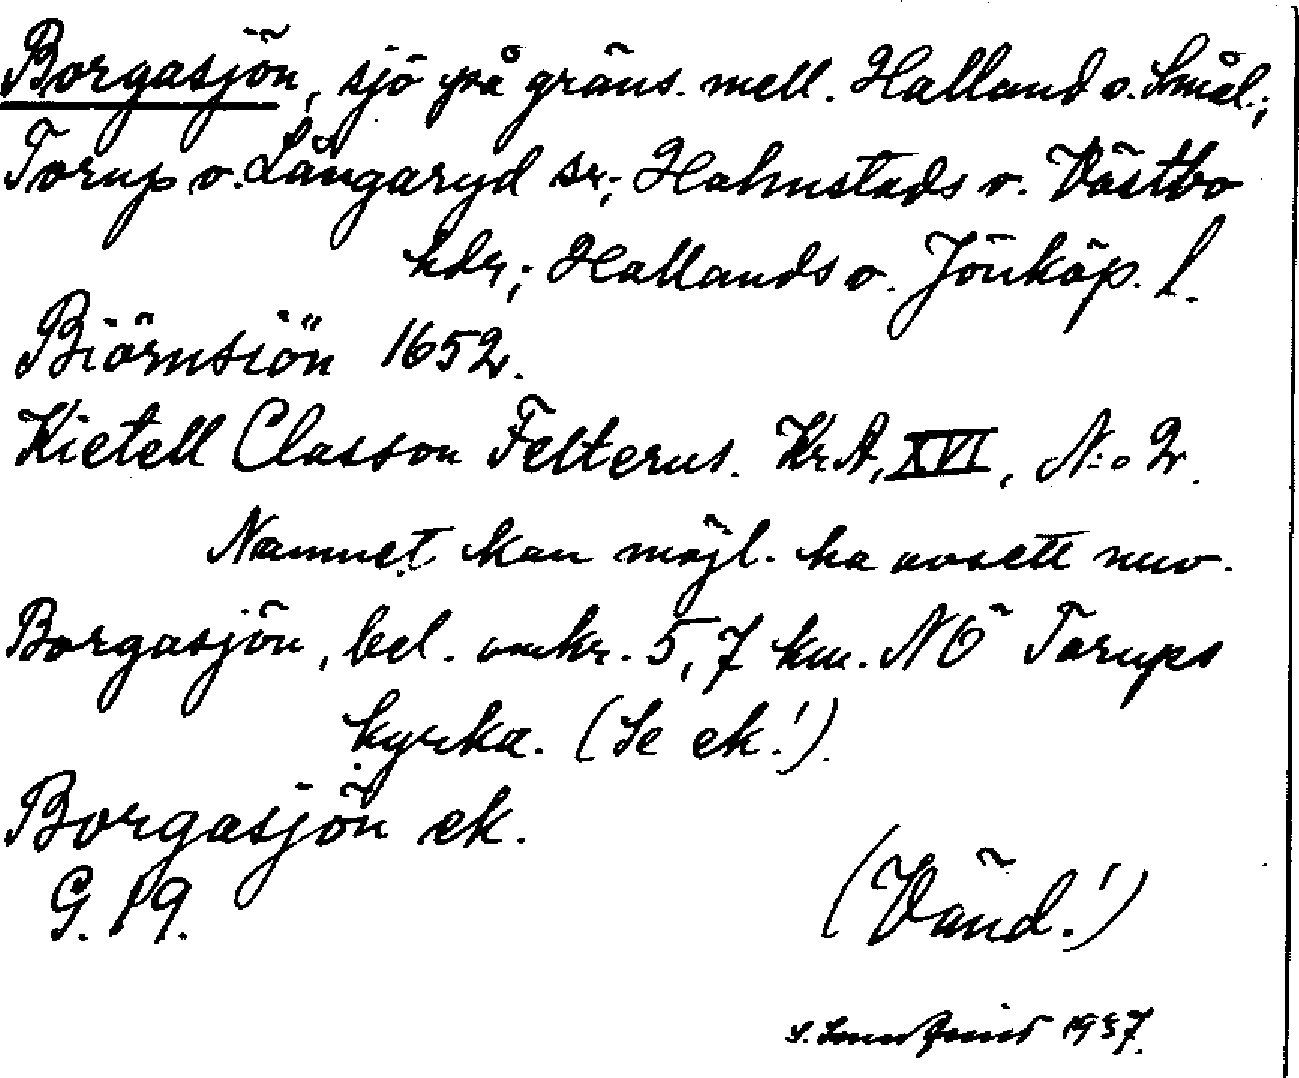 Borgasjön, sjö på gräns. mell. Halland o. Smål.;
Torup o. Långaryd sr; Halmstads o. Västbo
hdr; Hallands o. Jönköp. l.
Biörnsiön 1652.
Kietell Classon Felterus. Kr.A, XVI, N:o 2.
Namnet kan möjl. ha avsett nuv.
Borgasjön, bel. omkr. 5,7 km. NÖ Torups
kyrka. (Se ek.!)
Borgasjön ek.
G. 19.
(Vänd.!)
1937.